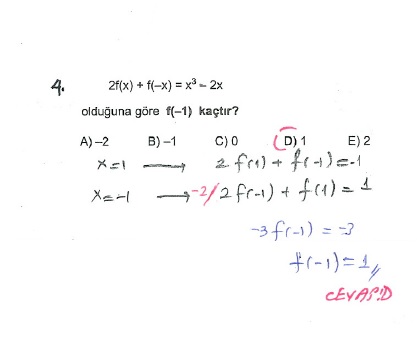 4. 2f(x) + f(–x) = x³ – 2x
olduğuna göre f(–1) kaçtır?
A) –2 B) –1 C) 0 D) 1 E) 2
x=1 → 2f(1) + f(-1) = -1
x=-1 → -2/ 2f(-1) + f(1) = 1
-3f(-1) = -3
f(-1) = 1//
CEVAP:D